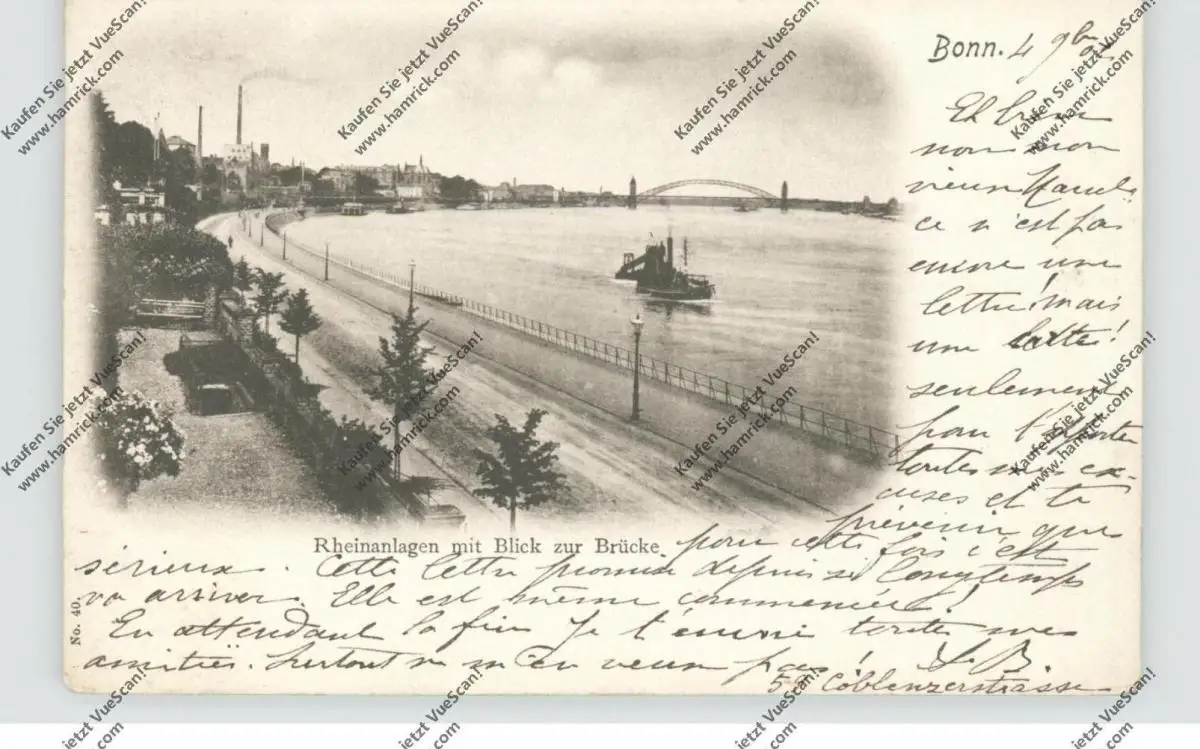 Bonn. 4 9bre
Eh bien
non mon
vieux Marcel,
ce n'est pas
encore une
lettre, mais
une carte!
seulement
pour t'apporter
toutes mes ex-
cuses et te
prévenir que
pour cette fois c'est
sérieux. Cette lettre promise depuis si longtemps
va arriver. Elle est même commencée!
En attendant la fin je t'envoie toutes mes
amitiés. Surtout ne m'en veux pas! L. B.
52 Coblenzerstrasse
Rheinanlagen mit Blick zur Brücke.
No. 40.
Kaufen Sie jetzt VueScan!
www.hamrick.com